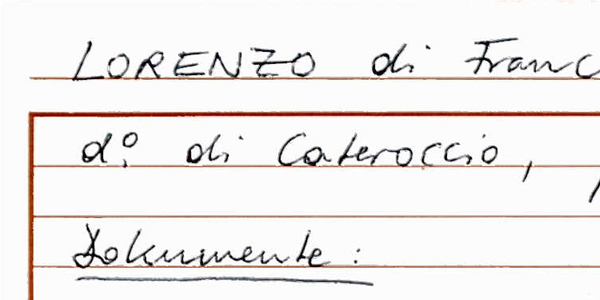 LORENZO di Franc
d.º di Cateroccio,
Dokumente: